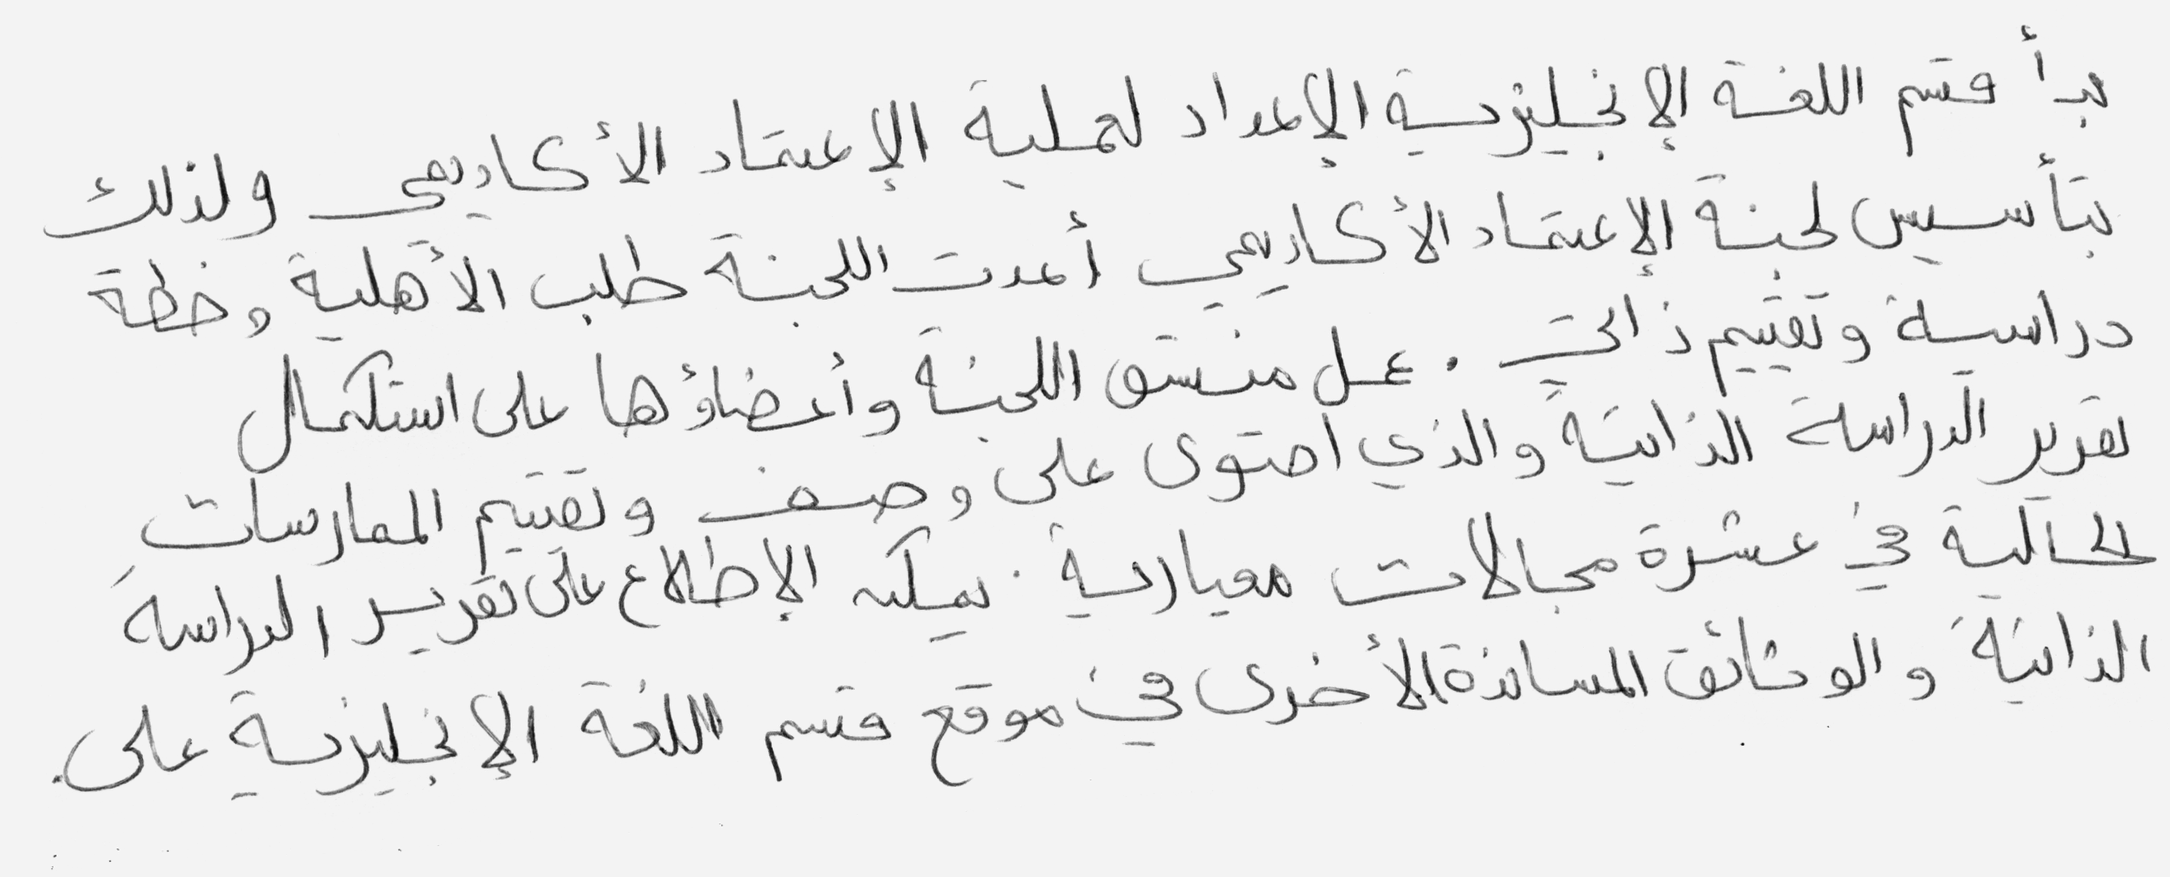 بدأ قسم اللغة الإنجليزية الإعداد لعملية الإعتماد الأكاديمي ولذلك
بتأسيس لجنة الإعتماد الأكاديمي أعدت اللجنة طلب الأهلية وخطة
دراسية وتقييم ذاتي . عمل منسق اللجنة وأعضاؤها على استكمال
تقرير الدراسة الذاتية والذي احتوى على وصف وتقييم الممارسات
الحالية في عشرة مجالات معيارية . يمكنه الإطلاع على تقرير الدراسة
الذاتية والوثائق المساندة الأخرى في موقع قسم اللغة الإنجليزية على .